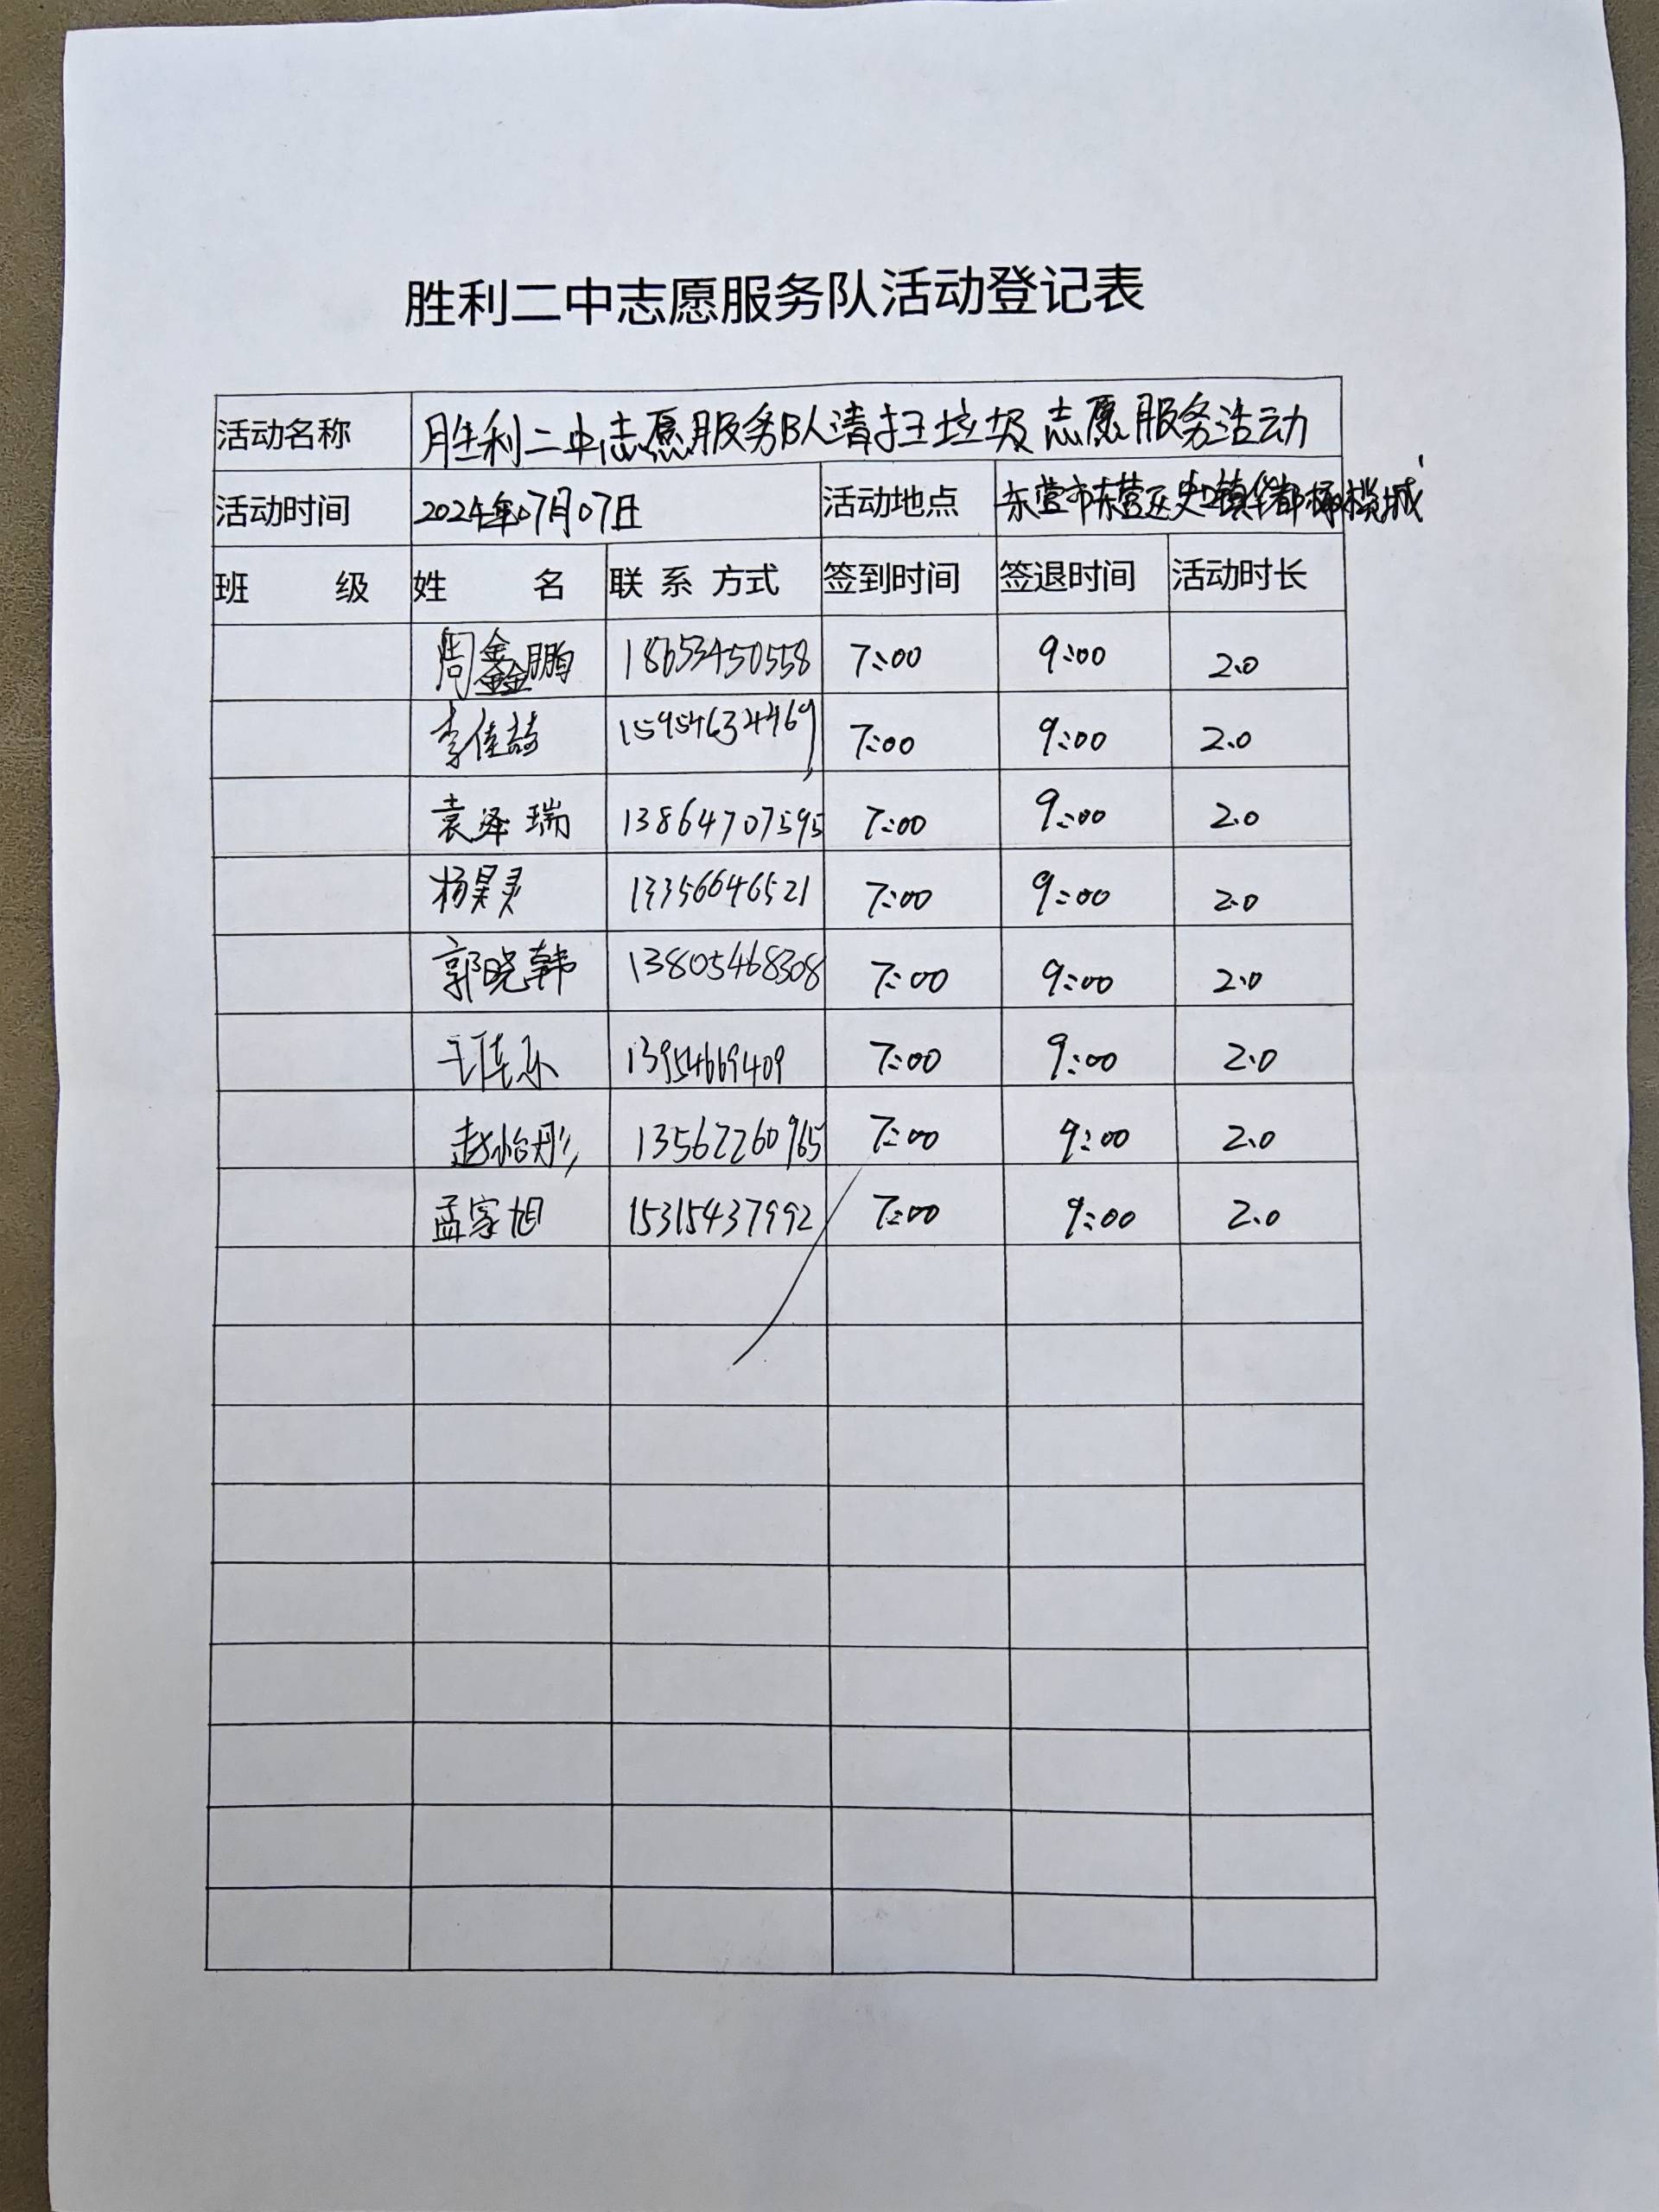 胜利二中志愿服务队活动登记表
活动名称 胜利二中志愿服务队清扫垃圾志愿服务活动
活动时间 2024年07月07日 活动地点 东营市东营区史口镇华都 城
班 级 姓 名 联系方式 签到时间 签退时间 活动时长
周鑫鹏 18653450558 7:00 9:00 2.0
李佳喆 15954634469 7:00 9:00 2.0
袁泽瑞 13864707595 7:00 9:00 2.0
杨昊灵 13356646521 7:00 9:00 2.0
郭晓韩 13805468308 7:00 9:00 2.0
13954669409 7:00 9:00 2.0
赵怡彤 13562260965 7:00 9:00 2.0
孟家旭 15315437992 7:00 9:00 2.0